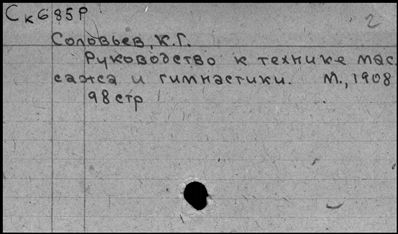 Ск685Р
2
Соловьев, К.Г.
Руководство к технике мас
сажа и гимнастики. М., 1908
98 стр